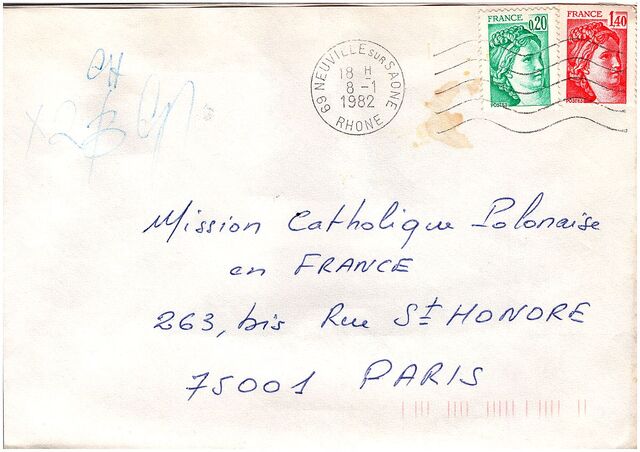 FRANCE 0,20
POSTES
FRANCE 1,40
POSTES
69 NEUVILLE SUR SAONE
18 H
8 -1
1982
RHONE
CH
Mission Catholique Polonaise
en FRANCE
263, bis Rue St HONORE
75001 PARIS